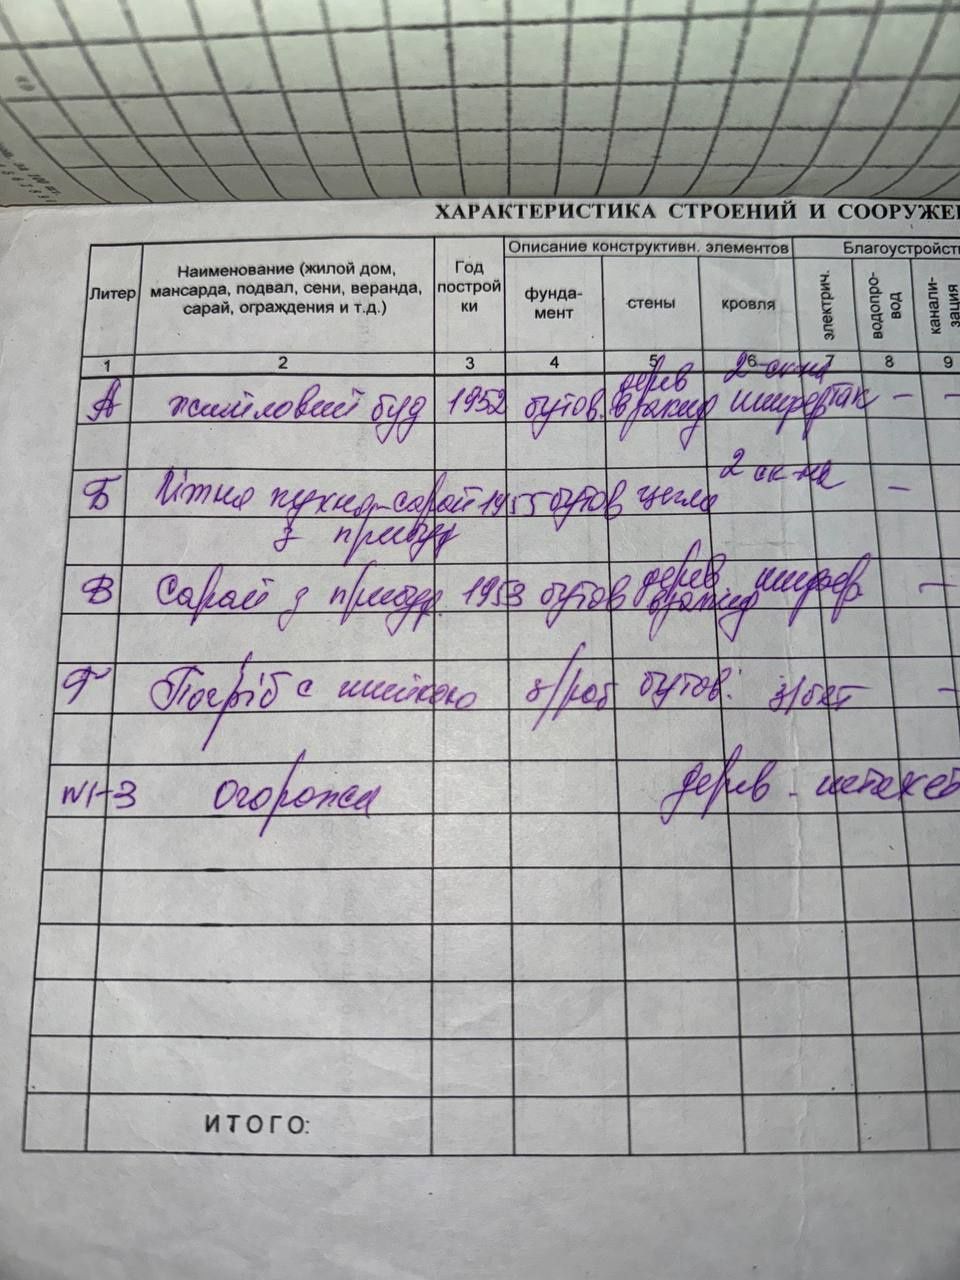 ХАРАКТЕРИСТИКА СТРОЕНИЙ И СООРУЖЕ
Литер
Наименование (жилой дом,
мансарда, подвал, сени, веранда,
сарай, ограждения и т.д.)
Год
построй
ки
Описание конструктивн. элементов
фунда-
мент
стены
кровля
Благоустройст
электрич.
водопро-
вод
канали-
зация
1 2 3 4 5 6 7 8 9
дерев 2 ск-на
А житловий буд 1952 бутов. вражид шифер так – –
2 ск-на
Б Літня кухня-сарай 1955 бутов цегла –
з прибуд
В Сарай з прибуд. 1953 бутов дерев шифер –
вражид
Г Погріб с шийкою з/роб бутов. з/бет –
N1-3 Огорожа дерев - штахет
ИТОГО: